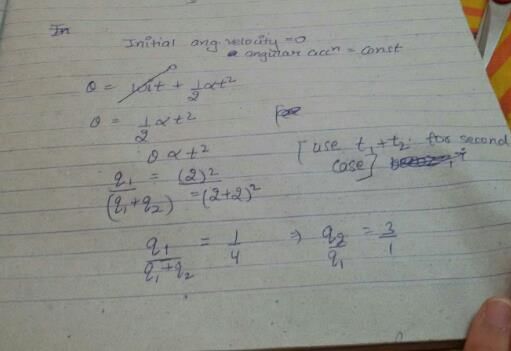 In
Initial ang velocity = 0
angular accⁿ = const
θ = ωit + 1/2 αt²
θ = 1/2 αt²
θ α t²
[use t₁+t₂ for second case]
q₁/(q₁+q₂) = (2)²/(2+2)²
q₁/q₁+q₂ = 1/4 ⇒ q₂/q₁ = 3/1